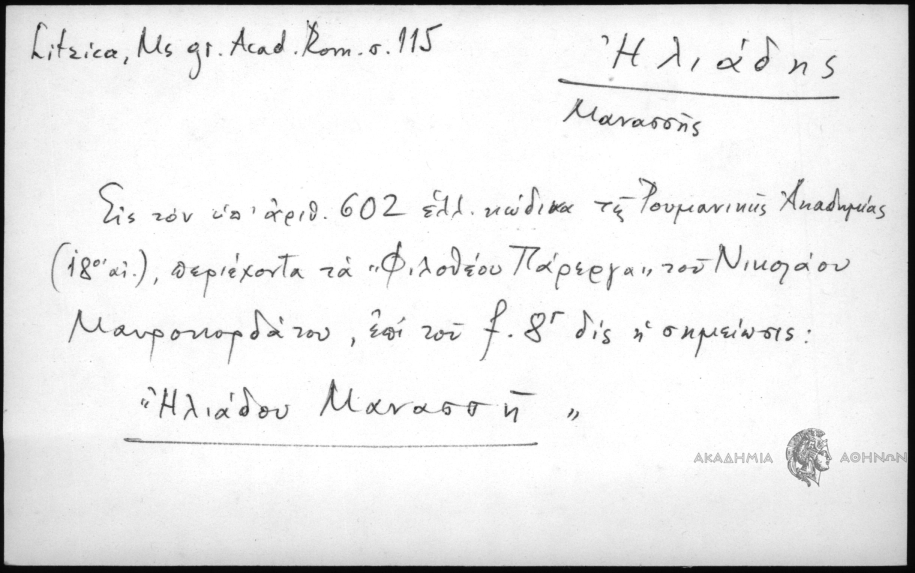 Litzica, Ms gr. Acad. Rom. σ. 115
Ἠλιάδης
Μανασσῆς
Εἰς τὸν ὑπ' ἀριθ. 602 ἑλλ. κώδικα τῆς Ῥουμανικῆς Ἀκαδημίας
(18ου αἰ.), περιέχοντα τὰ "Φιλοθέου Πάρεργα" τοῦ Νικολάου
Μαυροκορδάτου, ἐπὶ τοῦ f. 8r δὶς ἡ σημείωσις:
"Ἠλιάδου Μανασσῆ"
ΑΚΑΔΗΜΙΑ ΑΘΗΝΩΝ